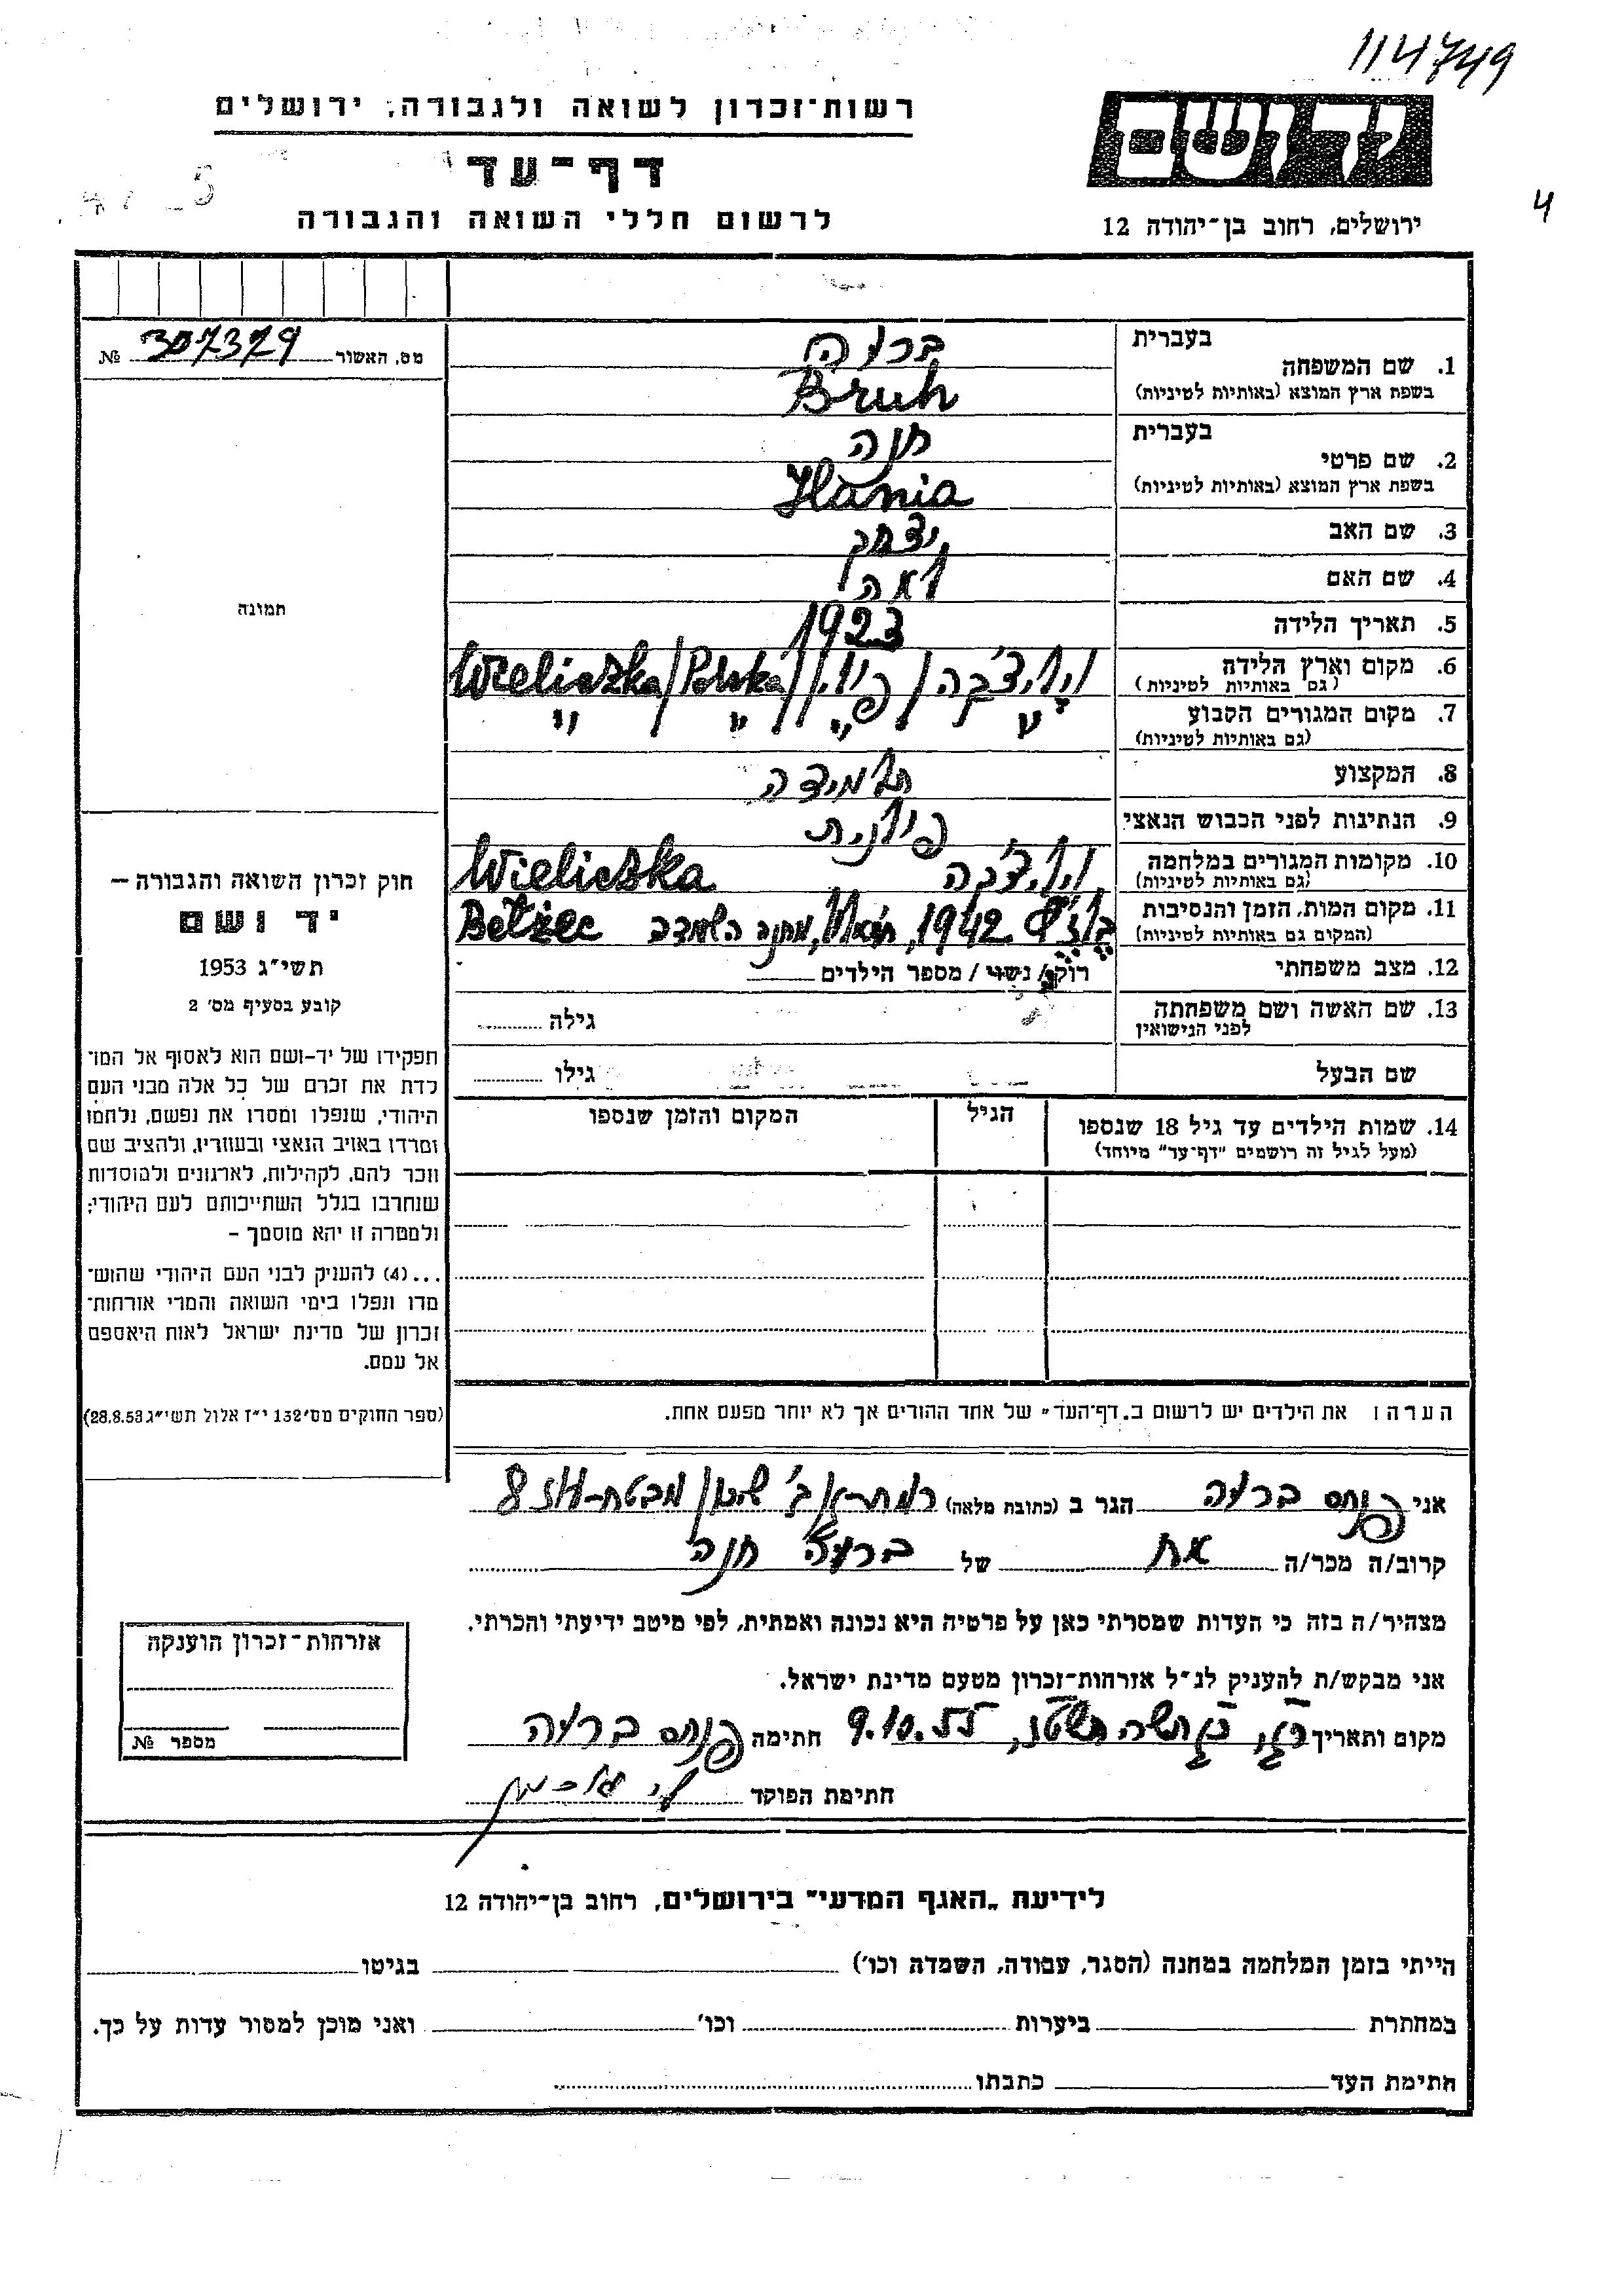 114749
רשות־זכרון לשואה ולגבורה, ירושלים
ידושם
דף־עד
4
לרשום חללי השואה והגבורה
ירושלים, רחוב בן־יהודה 12
מס. האשור 307379 №
בעברית
1. שם המשפחה
בשפת ארץ המוצא (באותיות לטיניות)
Bruh
בעברית חנה
2. שם פרטי
בשפת ארץ המוצא (באותיות לטיניות)
Hania
3. שם האב יצחק
4. שם האם לאה
5. תאריך הלידה 1923
6. מקום וארץ הלידה
(גם באותיות לטיניות)
Wieliczka / Polska /
7. מקום המגורים הקבוע
(גם באותיות לטיניות)
" " " "
8. המקצוע תלמידה
9. הנתינות לפני הכבוש הנאצי פולנית
10. מקומות המגורים במלחמה
(גם באותיות לטיניות)
Wieliczka
11. מקום המות, הזמן והנסיבות
(המקום גם באותיות לטיניות)
1942, מחנה השמדה Bełżec
12. מצב משפחתי רווק / נשוי / מספר הילדים
13. שם האשה ושם משפחתה
לפני הנישואין
גילה
שם הבעל גילו
14. שמות הילדים עד גיל 18 שנספו
(מעל לגיל זה רושמים "דף־עד" מיוחד)
הגיל
המקום והזמן שנספו
הערה: את הילדים יש לרשום ב„דף־העד" של אחד ההורים אך לא יותר מפעם אחת.
תמונה
חוק זכרון השואה והגבורה –
יד ושם
תשי"ג 1953
קובע בסעיף מס' 2
תפקידו של יד-ושם הוא לאסוף אל המו־
לדת את זכרם של כל אלה מבני העם
היהודי, שנפלו ומסרו את נפשם, נלחמו
ומרדו באויב הנאצי ובעוזריו, ולהציב שם
וזכר להם, לקהילות, לארגונים ולמוסדות
שנחרבו בגלל השתייכותם לעם היהודי;
ולמטרה זו יהא מוסמך –
...(4) להעניק לבני העם היהודי שהוש־
מדו ונפלו בימי השואה והמרי אזרחות־
זכרון של מדינת ישראל לאות היאספם
אל עמם.
(ספר החוקים מס' 132 י"ז אלול תשי"ג 28.8.53)
אני פנחס הגר ב (כתובת מלאה) 8
קרוב/ה מכר/ה אח של חנה
מצהיר/ה בזה כי העדות שמסרתי כאן על פרטיה היא נכונה ואמתית, לפי מיטב ידיעתי והכרתי.
אני מבקש/ת להעניק לנ"ל אזרחות-זכרון מטעם מדינת ישראל.
מקום ותאריך 9.10.55 חתימה פנחס
חתימת הפוקד
אזרחות־זכרון הוענקה
מספר №
לידיעת „האגף המדעי" בירושלים, רחוב בן־יהודה 12
הייתי בזמן המלחמה במחנה (הסגר, עבודה, השמדה וכו') בגיטו
במחתרת ביערות וכו' ואני מוכן למסור עדות על כך.
חתימת העד כתבתו